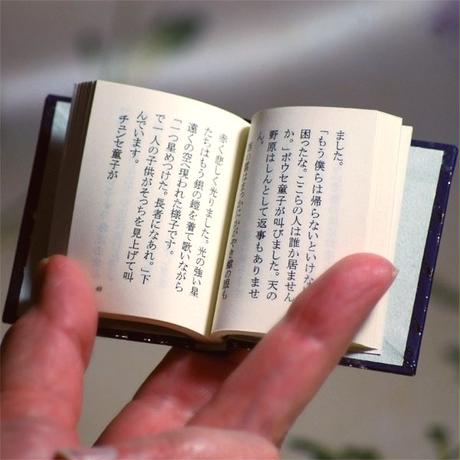 ました。
「もう僕らは帰らないといけな
困ったな。ここらの人は誰か居ません
か。」ポウセ童子が叫びました。天の
野原はしんとして返事もありませ
ん。
にかがやき蠍の眼も
赤く悲しく光りました。光の強い星
たちはもう銀の鎧を着て歌いながら
遠くの空へ現われた様子です。
「一つ星めつけた。長者になあれ。」下
で一人の子供がそっちを見上げて叫
んでいます。
チュンセ童子が